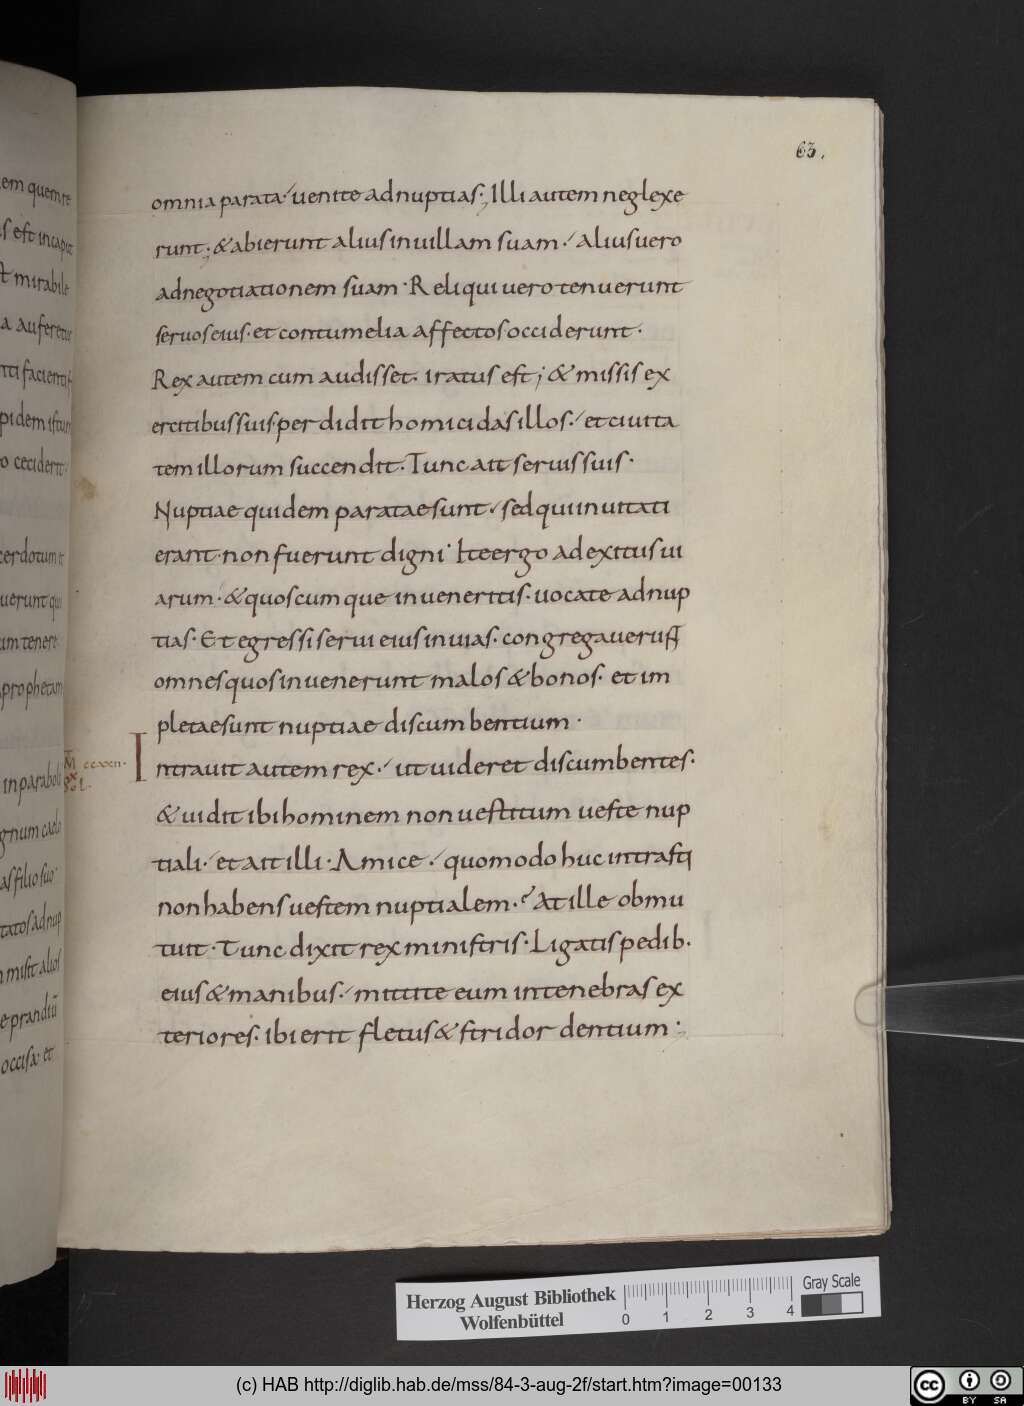 63.
em quem re
s est in capit
t mirabile
a auferetur
nti facienti
pidem istum
o ceciderit
cerdotum et
uerunt qui
um tenere
prophetam
in parabolis
gnum caelo
as filio suo
tatos ad nup
misit alios
e prandiū
occisa· et
omnia parata·/ uenite ad nuptias; Illi autem neglexe
runt; & abierunt alius in uillam suam·/ Alius uero
ad negotiationem suam· Reliqui uero tenuerunt
seruos eius· et contumelia affectos occiderunt·
Rex autem cum audisset· iratus est; & missis ex
ercitibus suis· perdidit homicidas illos·/ et ciuita
tem illorum succendit· Tunc ait seruis suis·
Nuptiae quidem paratae sunt·/ sed qui inuitati
erant· non fuerunt digni· Ite ergo ad exitus ui
arum· & quoscumque inueneritis· uocate ad nup
tias· Et egressi serui eius in uias· congregauerunt
omnes quos inuenerunt malos & bonos· et im
pletae sunt nuptiae discumbentium·
M ccxxii·
Intrauit autem rex·/ ut uideret discumbentes·
& uidit ibi hominem non uestitum ueste nup
tiali·/ et ait illi· Amice·/ quomodo huc intrasti
non habens uestem nuptialem·? At ille obmu
tuit· Tunc dixit rex ministris· Ligatis pedib·
eius & manibus·/ mittite eum in tenebras ex
teriores· ibi erit fletus & stridor dentium·
Herzog August Bibliothek
Wolfenbüttel
0 1 2 3 4
Gray Scale
(c) HAB http://diglib.hab.de/mss/84-3-aug-2f/start.htm?image=00133
cc BY SA